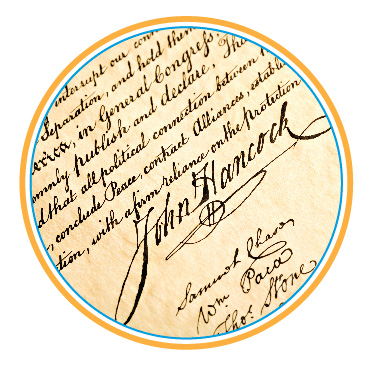 interrupt our conn
Separation, and hold them
erica, in General Congress,
omnly publish and declare, Tha
d that all political connection between
, conclude Peace, contract Alliances, establis
tion, with a firm reliance on the protection
John Hancock
Samuel Chase
Wm. Paca
Thos. Stone